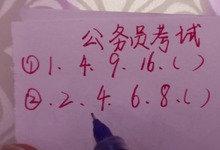 公务员考试
① 1. 4. 9. 16. ( )
② . 2. 4. 6. 8. ( )